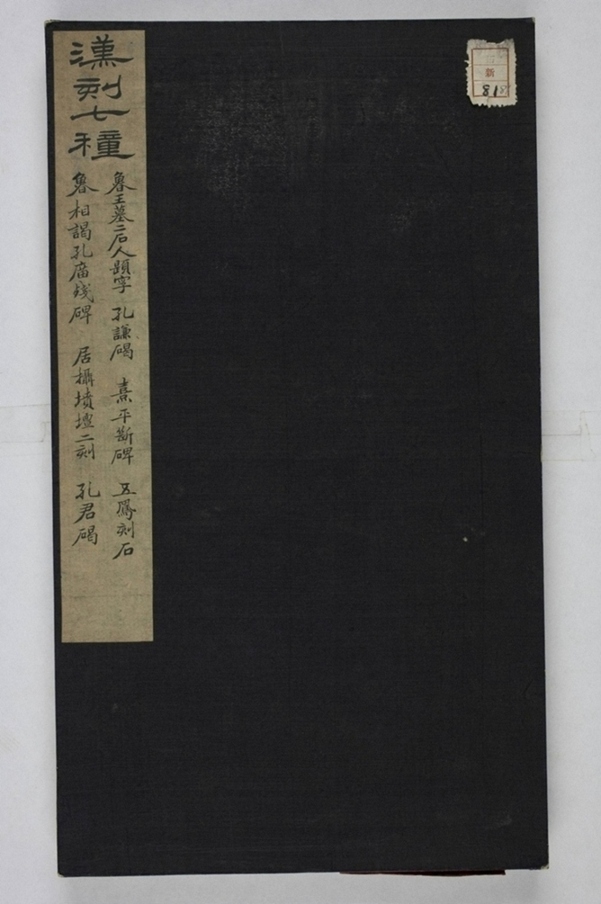 漢刻七種
魯王墓二石人題字 孔謙碣 熹平斷碑 五鳳刻石
魯相謁孔廟殘碑 居攝墳壇二刻 孔君碣
新
818